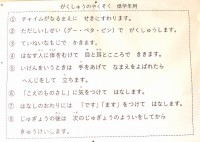 がくしゅうのやくそく
① チャイムがなるまえに せきにすわります。
② ただしいしせい（グー・ペタ・ピン）で がくしゅうします。
③ ていねいなもじで かきます。
④ はなす人に体をむけて 目と耳とこころで ききます。
⑤ いけんをいうときは 手をあげて なまえをよばれたら
へんじをして 立ちます。
⑥ 「こえのものさし」に気をつけて はなします。
⑦ はなしのおわりには 「です」「ます」をつけて はなします。
⑧ じゅぎょうの後は 次のじゅぎょうのよういをしてから
きゅうけいします。